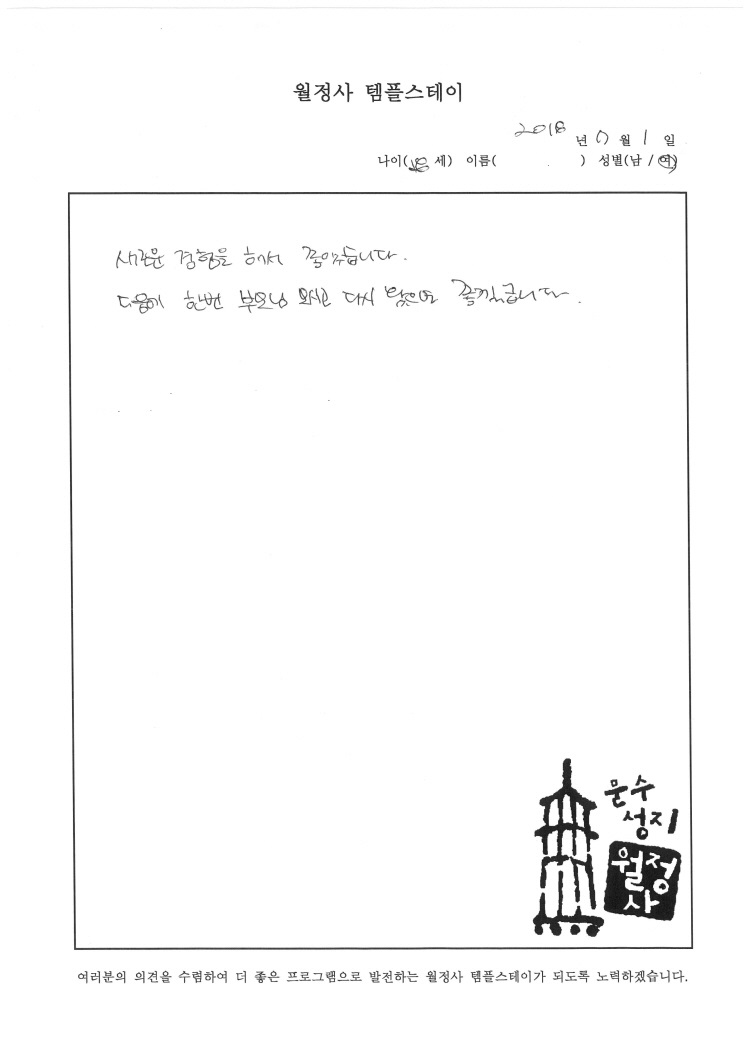 월정사 템플스테이
2018 년 7 월 1 일
나이( 세) 이름( ) 성별(남 / 여)
새로운 경험을 해서 좋았습니다.
다음에 한번 부모님 모시고 다시 왔으면 좋겠습니다.
문수
성지
월정
사
여러분의 의견을 수렴하여 더 좋은 프로그램으로 발전하는 월정사 템플스테이가 되도록 노력하겠습니다.